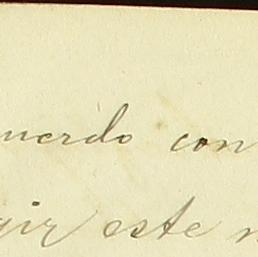 uerdo con
gir este n